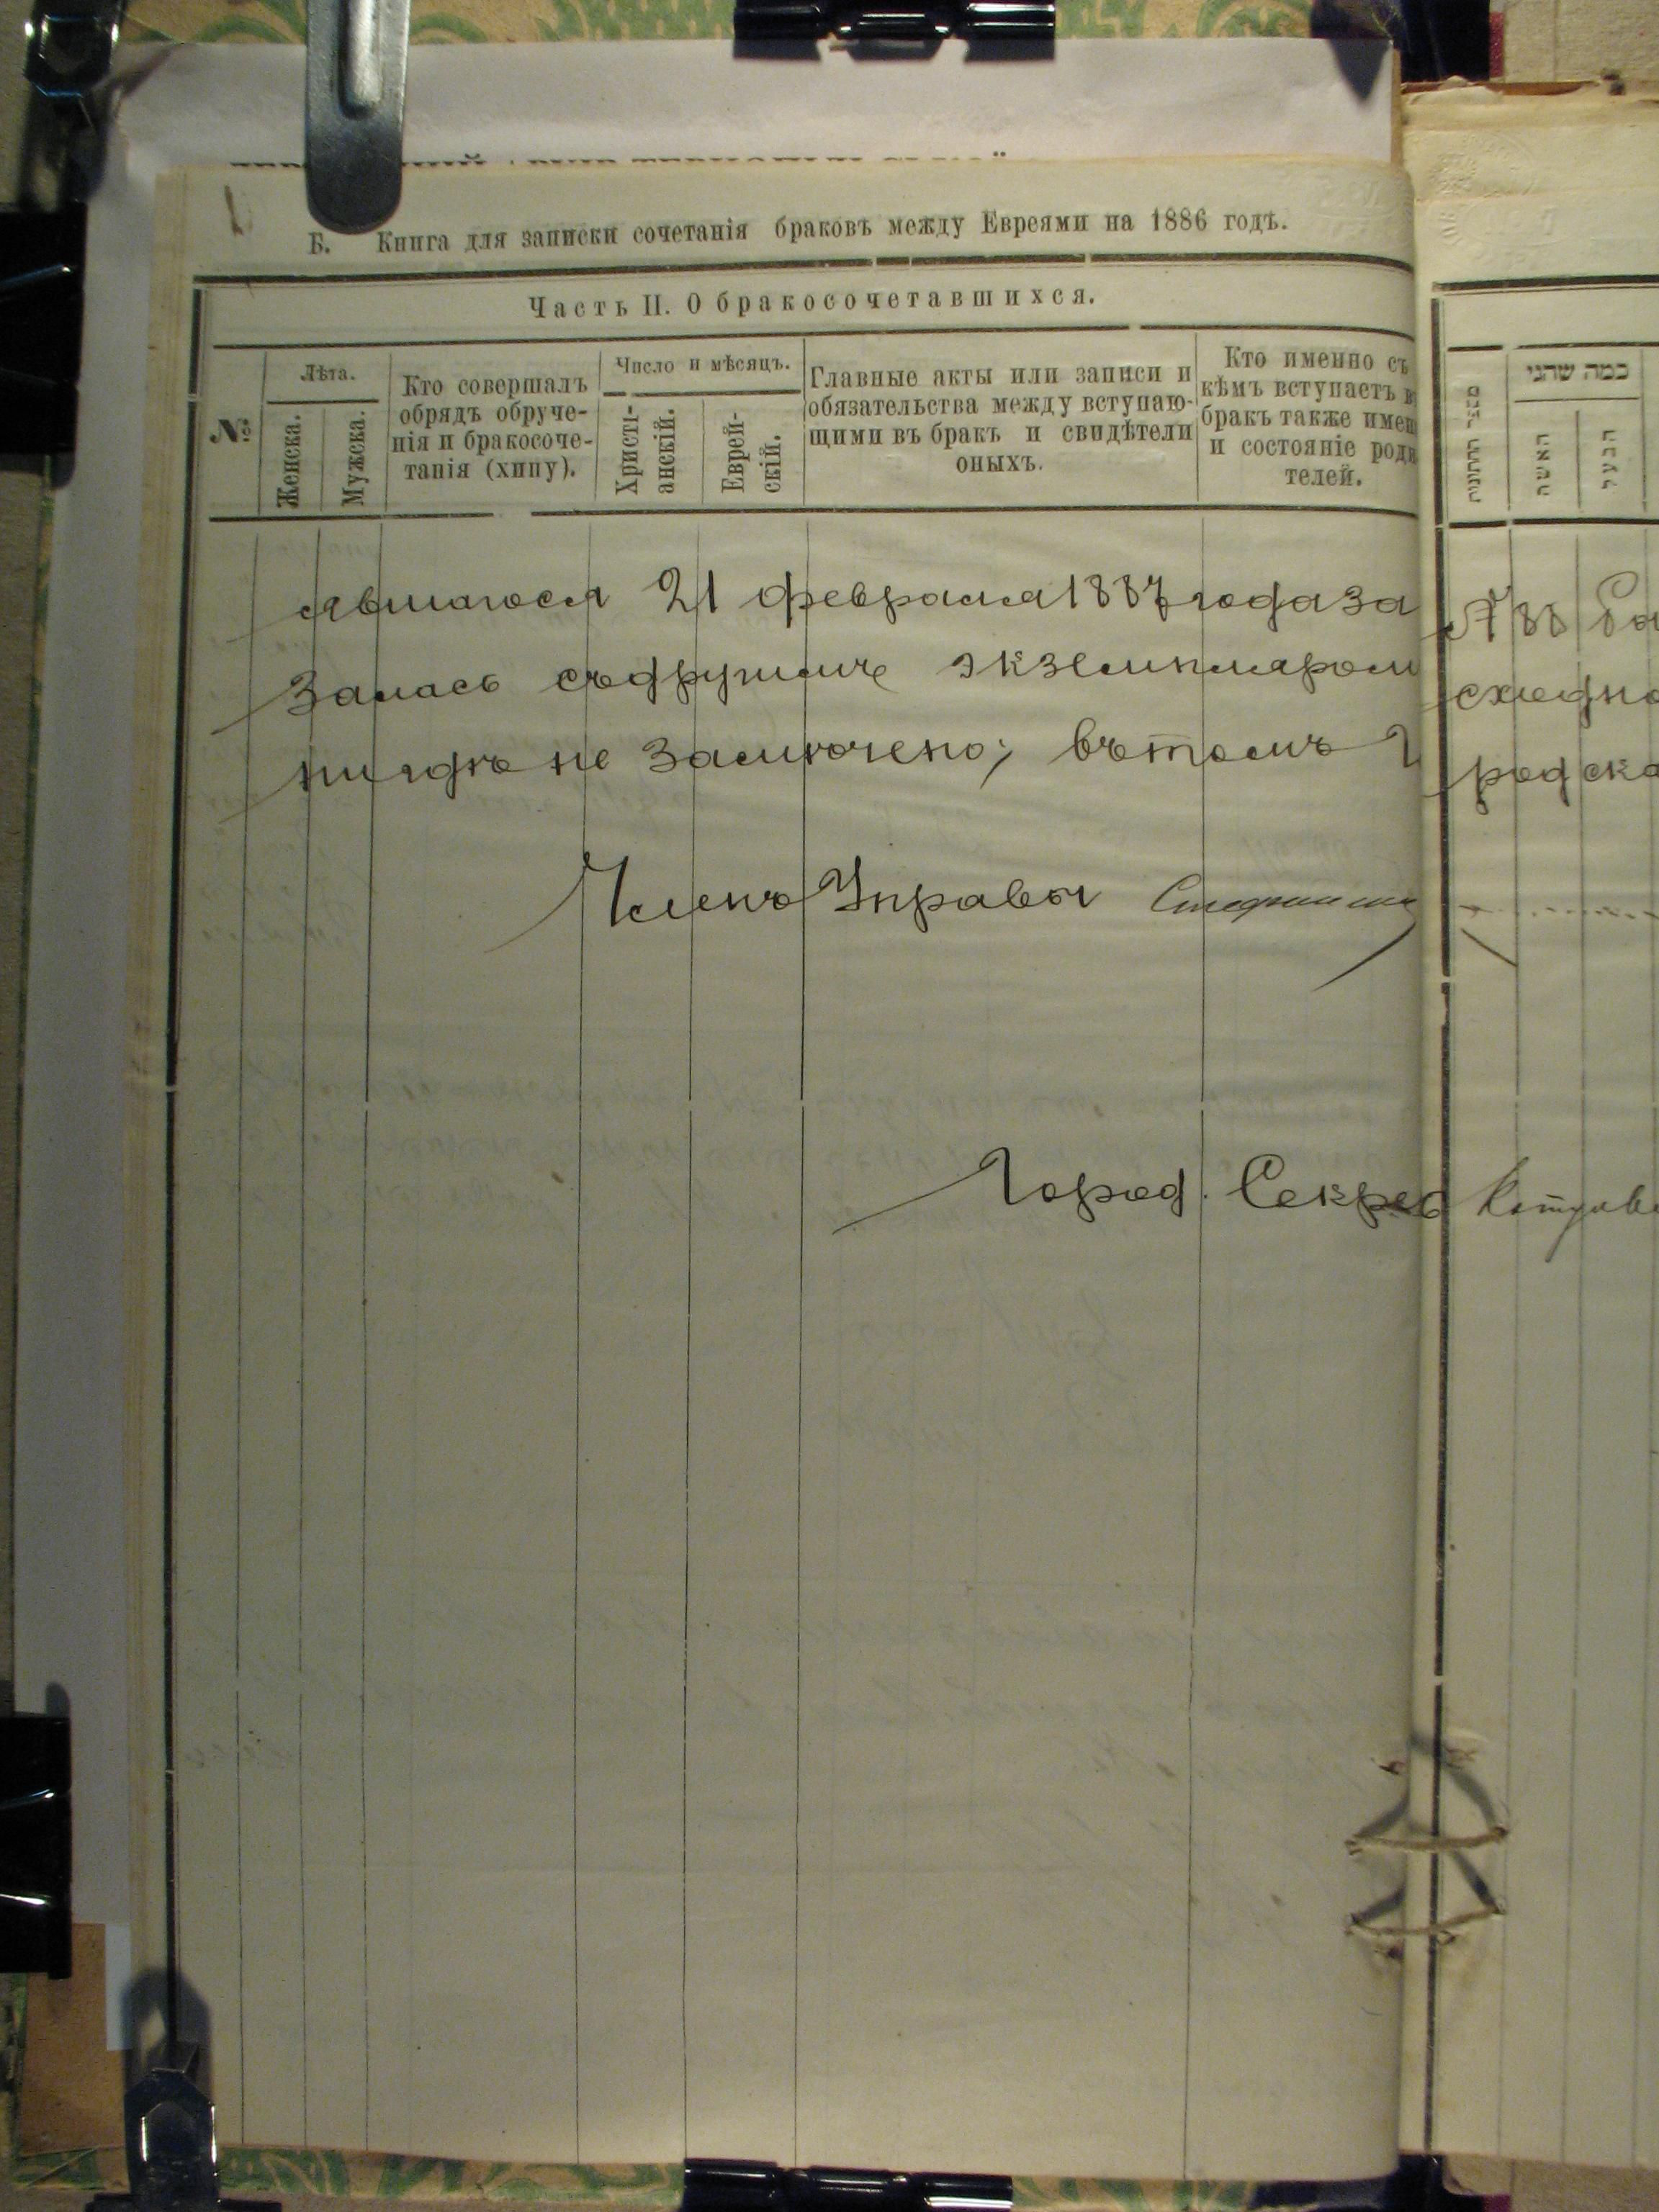 Б. Книга для записки сочетанія браковъ между Евреями на 1886 годъ.
Часть II. О бракосочетавшихся.
№
Лѣта.
Женска.
Мужска.
Кто совершалъ
обрядъ обруче-
нія и бракосоче-
танія (хипу).
Число и мѣсяцъ.
Христі-
анскій.
Еврей-
скій.
Главные акты или записи и
обязательства между вступаю-
щими въ бракъ и свидѣтели
оныхъ.
Кто именно съ
кѣмъ вступаетъ в
бракъ также имен
и состояніе роди
телей.
כמה שהני
האשה
הבעל
явшагося 21 февраля 1887 года за № 88
залась съ другимъ экземпляром сходно
нигдѣ не замечено; въ томъ Городска
Членъ Управы
Город. Секрет